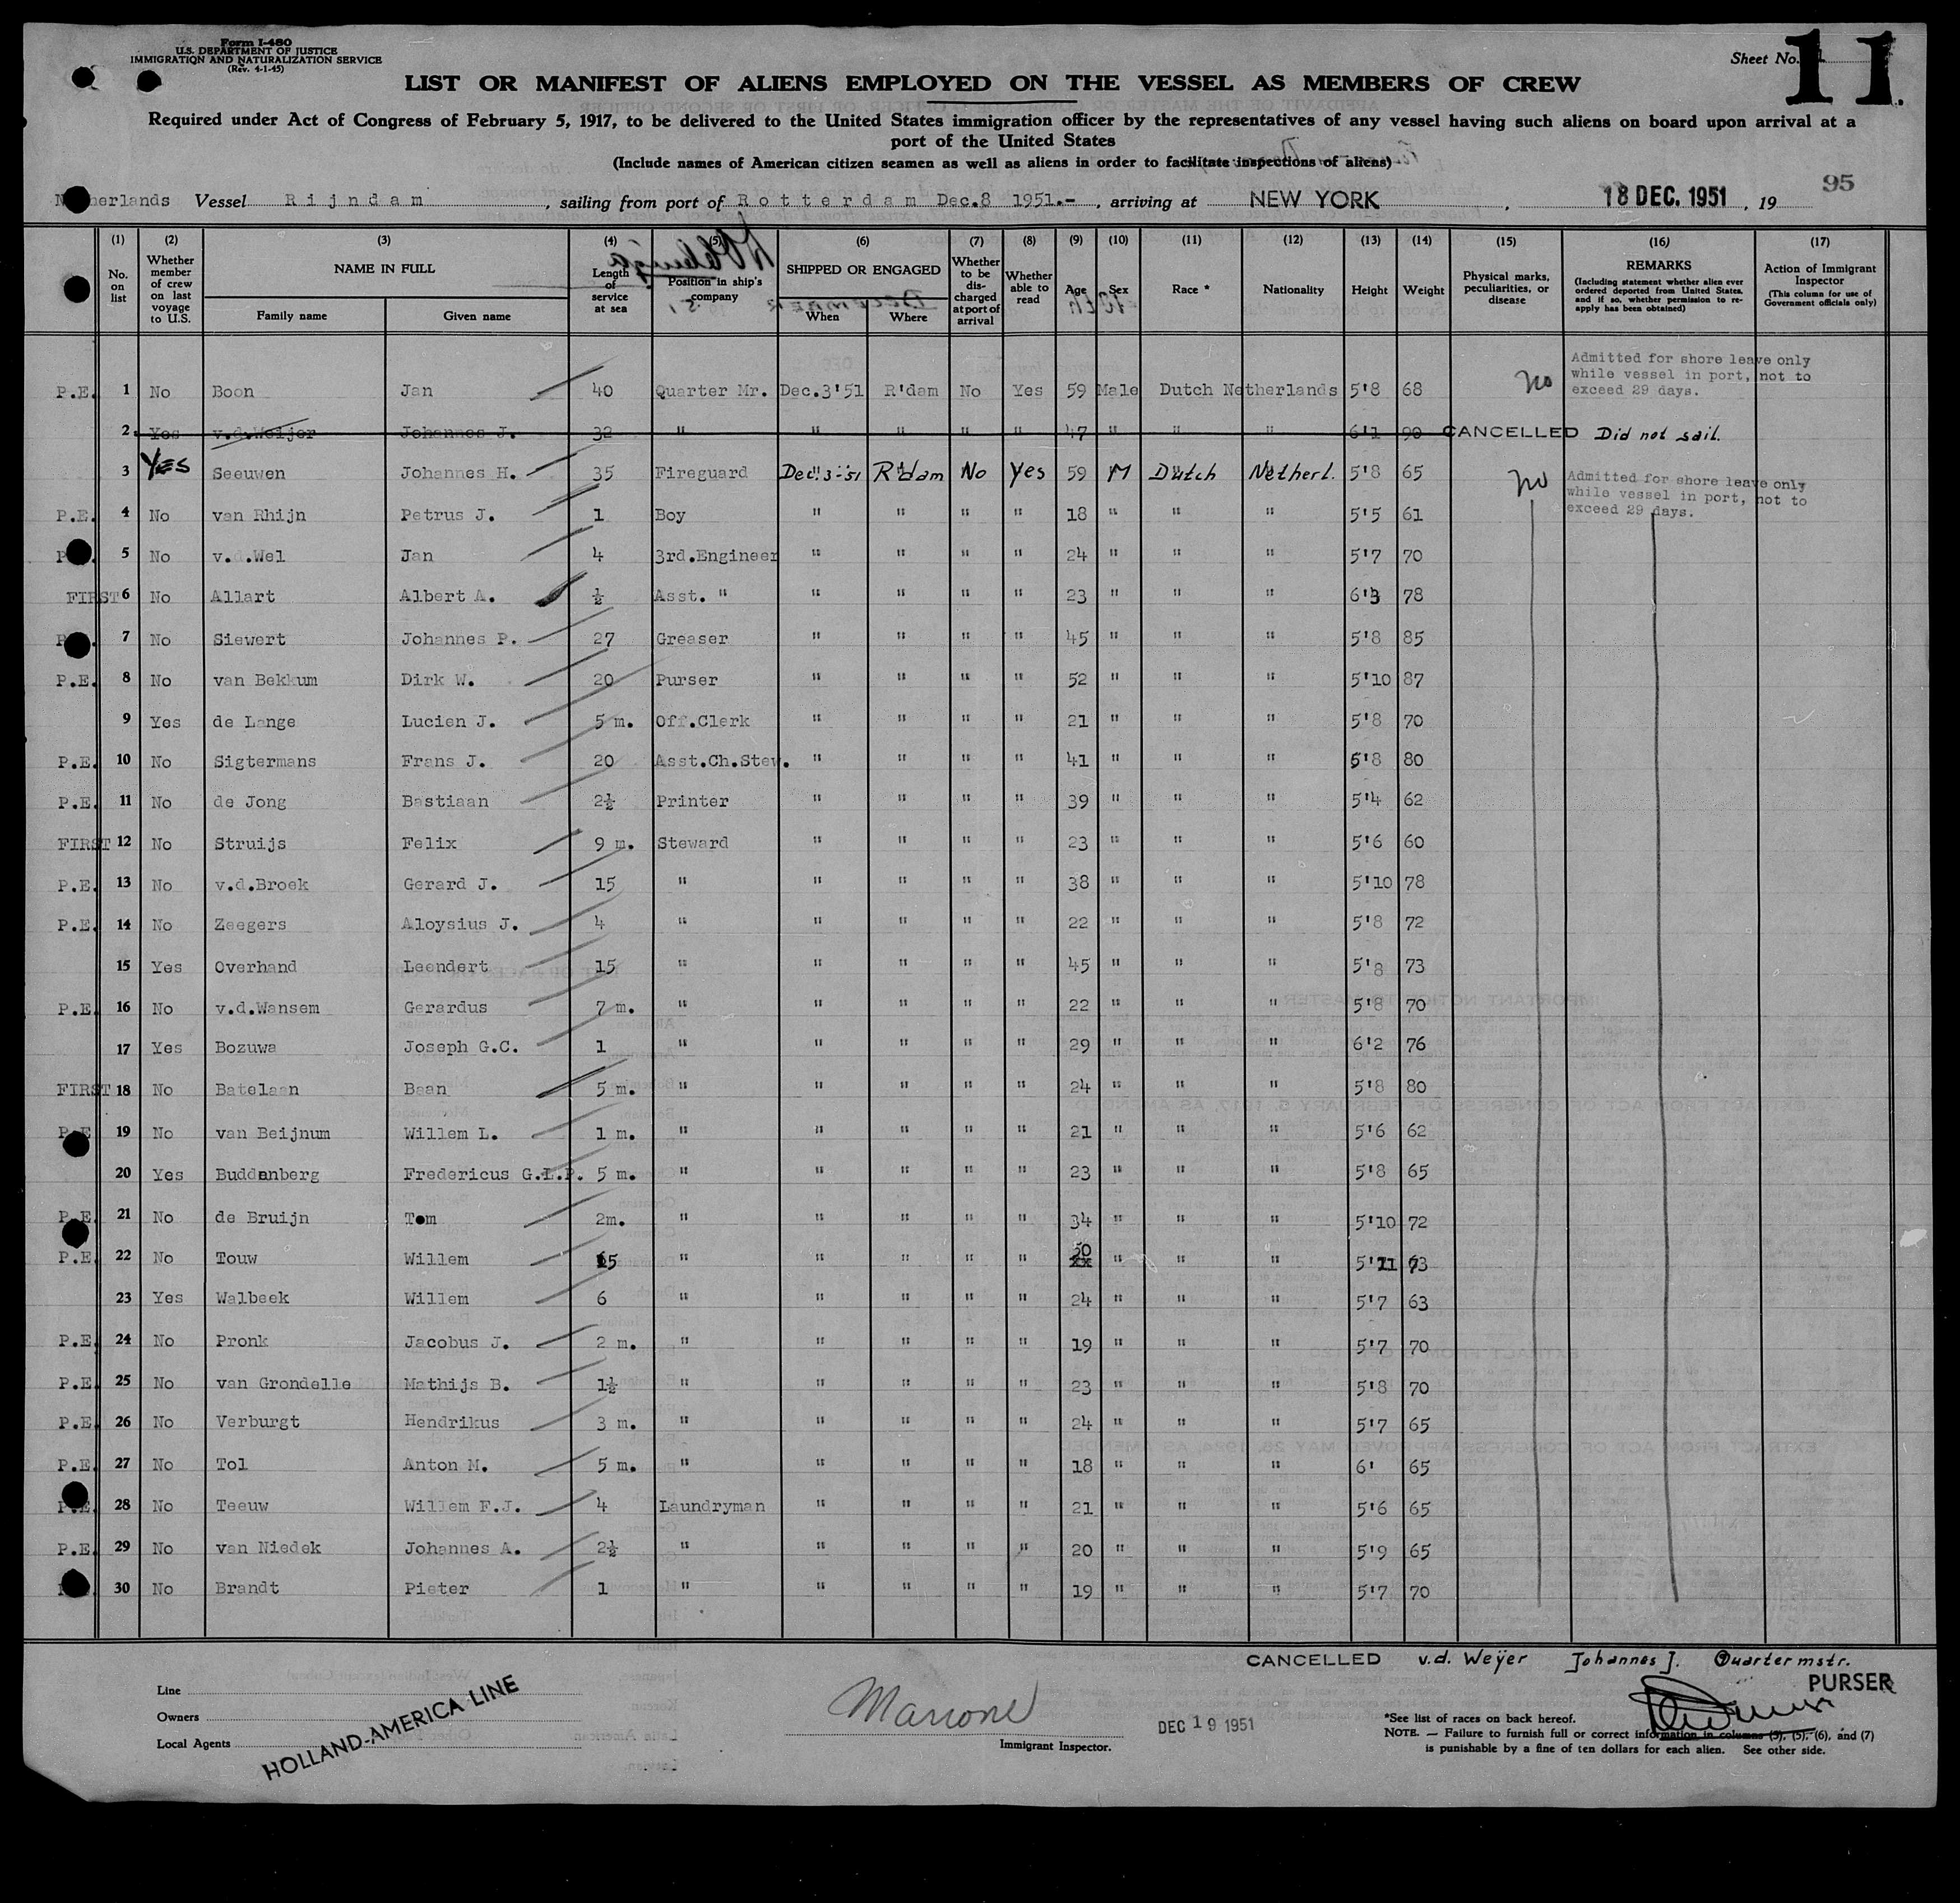 Form I-480
U.S. DEPARTMENT OF JUSTICE
IMMIGRATION AND NATURALIZATION SERVICE
(Rev. 4-1-45)
Sheet No. 11
LIST OR MANIFEST OF ALIENS EMPLOYED ON THE VESSEL AS MEMBERS OF CREW
Required under Act of Congress of February 5, 1917, to be delivered to the United States immigration officer by the representatives of any vessel having such aliens on board upon arrival at a
port of the United States
(Include names of American citizen seamen as well as aliens in order to facilitate inspections of aliens)
95
Vessel Rijndam, sailing from port of Rotterdam Dec.8 1951.-, arriving at NEW YORK, 18 DEC. 1951, 19
(1) (2) (3) (4) (5) (6) (7) (8) (9) (10) (11) (12) (13) (14) (15) (16) (17)
No. on list
Whether member of crew on last voyage to U.S.
NAME IN FULL
Family name Given name
Length of service at sea
Position in ship's company
SHIPPED OR ENGAGED
When Where
Whether to be discharged at port of arrival
Whether able to read
Age Sex Race * Nationality Height Weight
Physical marks, peculiarities, or disease
REMARKS
(Including statement whether alien ever ordered deported from United States, and if so, whether permission to re-apply has been obtained)
Action of Immigrant Inspector
(This column for use of Government officials only)
P.E. 1 No Boon Jan 40 Quarter Mr. Dec.3'51 R'dam No Yes 59 Male Dutch Netherlands 5'8 68 no Admitted for shore leave only while vessel in port, not to exceed 29 days.
2 Yes v.d.Weijer Johannes J. 32 " " " " " 47 " " " 6'1 90 CANCELLED Did not sail.
3 YES Seeuwen Johannes H. 35 Fireguard Dec. 3-51 R'dam No Yes 59 M Dutch Netherl. 5'8 65 no Admitted for shore leave only while vessel in port, not to exceed 29 days.
P.E. 4 No van Rhijn Petrus J. 1 Boy " " " " 18 " " " 5'5 61
5 No v.d.Wel Jan 4 3rd.Engineer " " " " 24 " " " 5'7 70
FIRST 6 No Allart Albert A. ½ Asst. " " " " " 23 " " " 6'3 78
7 No Siewert Johannes P. 27 Greaser " " " " 45 " " " 5'8 85
P.E. 8 No van Bekkum Dirk W. 20 Purser " " " " 52 " " " 5'10 87
9 Yes de Lange Lucien J. 5 m. Off.Clerk " " " " 21 " " " 5'8 70
P.E. 10 No Sigtermans Frans J. 20 Asst.Ch.Stew. " " " " 41 " " " 5'8 80
P.E. 11 No de Jong Bastiaan 2½ Printer " " " " 39 " " " 5'4 62
FIRST 12 No Struijs Felix 9 m. Steward " " " " 23 " " " 5'6 60
P.E. 13 No v.d.Broek Gerard J. 15 " " " " " 38 " " " 5'10 78
P.E. 14 No Zeegers Aloysius J. 4 " " " " " 22 " " " 5'8 72
15 Yes Overhand Leendert 15 " " " " " 45 " " " 5'8 73
P.E. 16 No v.d.Wansem Gerardus 7 m. " " " " " 22 " " " 5'8 70
17 Yes Bozuwa Joseph G.C. 1 " " " " " 29 " " " 6'2 76
FIRST 18 No Batelaan Baan 5 m. " " " " " 24 " " " 5'8 80
P.E. 19 No van Beijnum Willem L. 1 m. " " " " " 21 " " " 5'6 62
20 Yes Buddenberg Fredericus G.L.P. 5 m. " " " " " 23 " " " 5'8 65
P.E. 21 No de Bruijn Tom 2m. " " " " " 34 " " " 5'10 72
P.E. 22 No Touw Willem 15 " " " " " 50 " " " 5'11 73
23 Yes Walbeek Willem 6 " " " " " 24 " " " 5'7 63
P.E. 24 No Pronk Jacobus J. 2 m. " " " " " 19 " " " 5'7 70
P.E. 25 No van Grondelle Mathijs B. 1½ " " " " " 23 " " " 5'8 70
P.E. 26 No Verburgt Hendrikus 3 m. " " " " " 24 " " " 5'7 65
P.E. 27 No Tol Anton M. 5 m. " " " " " 18 " " " 6' 65
P.E. 28 No Teeuw Willem F.J. 4 Laundryman " " " " 21 " " " 5'6 65
P.E. 29 No van Niedek Johannes A. 2½ " " " " " 20 " " " 5'9 65
30 No Brandt Pieter 1 " " " " " 19 " " " 5'7 70
CANCELLED v.d. Weijer Johannes J. Quartermstr.
PURSER
Line
Owners
Local Agents
HOLLAND-AMERICA LINE
Immigrant Inspector.
DEC 19 1951
*See list of races on back hereof.
NOTE. — Failure to furnish full or correct information in columns (3), (5), (6), and (7)
is punishable by a fine of ten dollars for each alien. See other side.